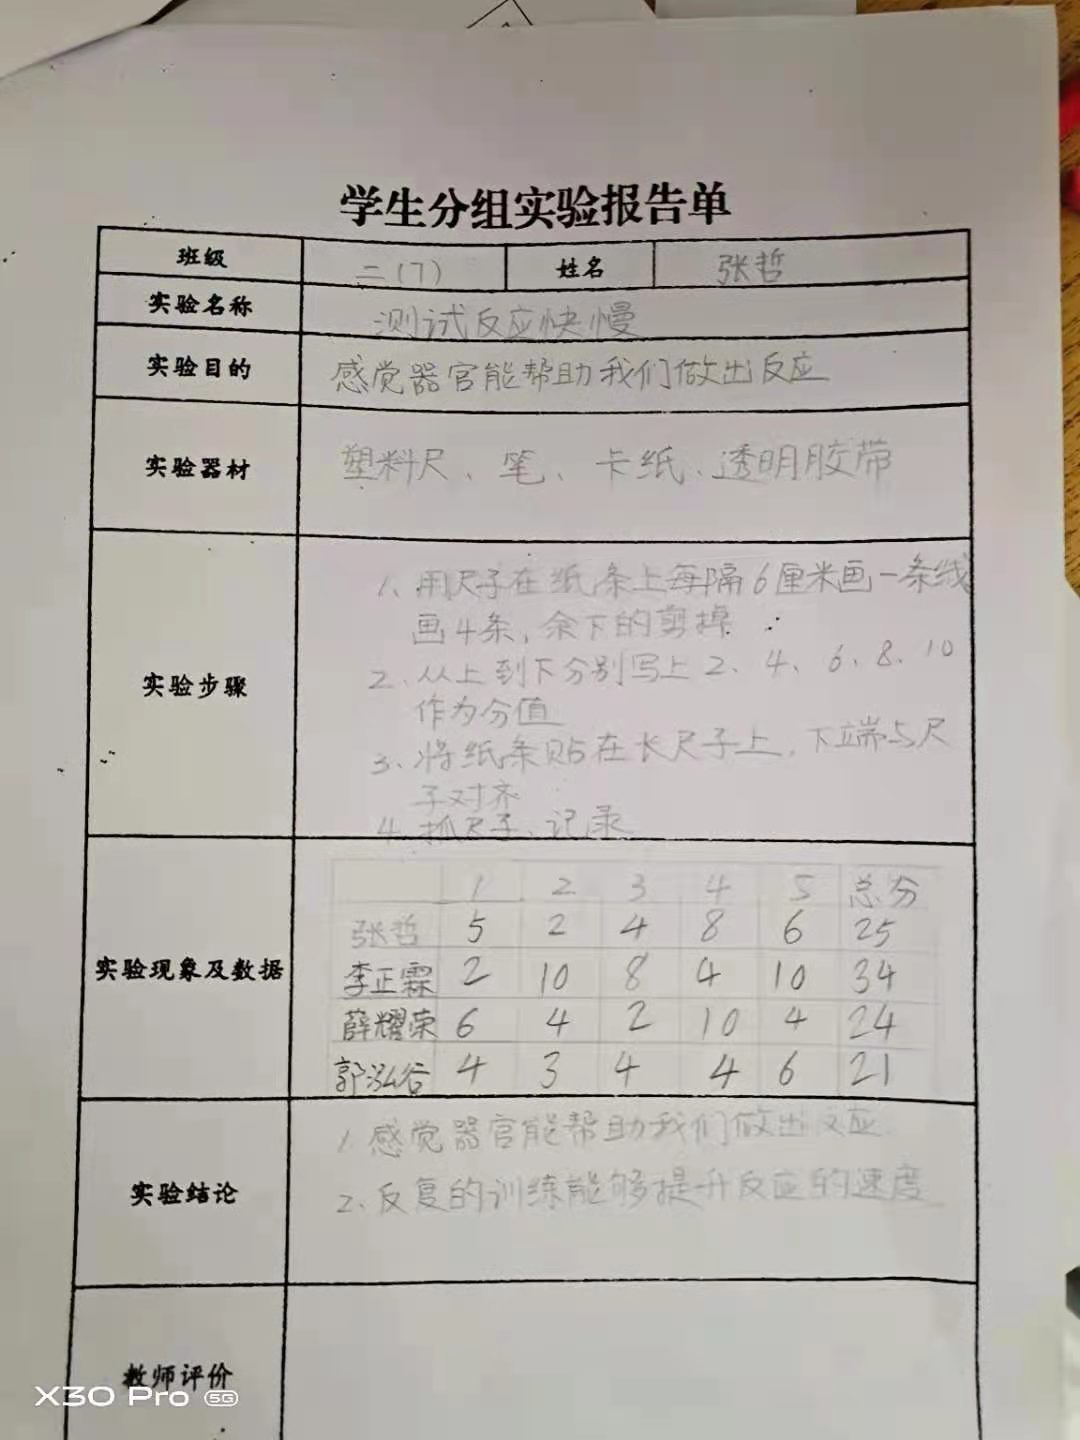 学生分组实验报告单
班级 二(7) 姓名 张哲
实验名称 测试反应快慢
实验目的 感觉器官能帮助我们做出反应
实验器材 塑料尺、笔、卡纸、透明胶带
实验步骤
1、用尺子在纸条上每隔6厘米画一条线
画4条,余下的剪掉
2、从上到下分别写上2、4、6、8、10
作为分值
3、将纸条贴在长尺子上,下端与尺
子对齐
4、抓尺子、记录
实验现象及数据
1 2 3 4 5 总分
张哲 5 2 4 8 6 25
李正霖 2 10 8 4 10 34
薛耀荣 6 4 2 10 4 24
郭泓谷 4 3 4 4 6 21
实验结论
1.感觉器官能帮助我们做出反应
2、反复的训练能够提升反应的速度
教师评价
X30 Pro 5G